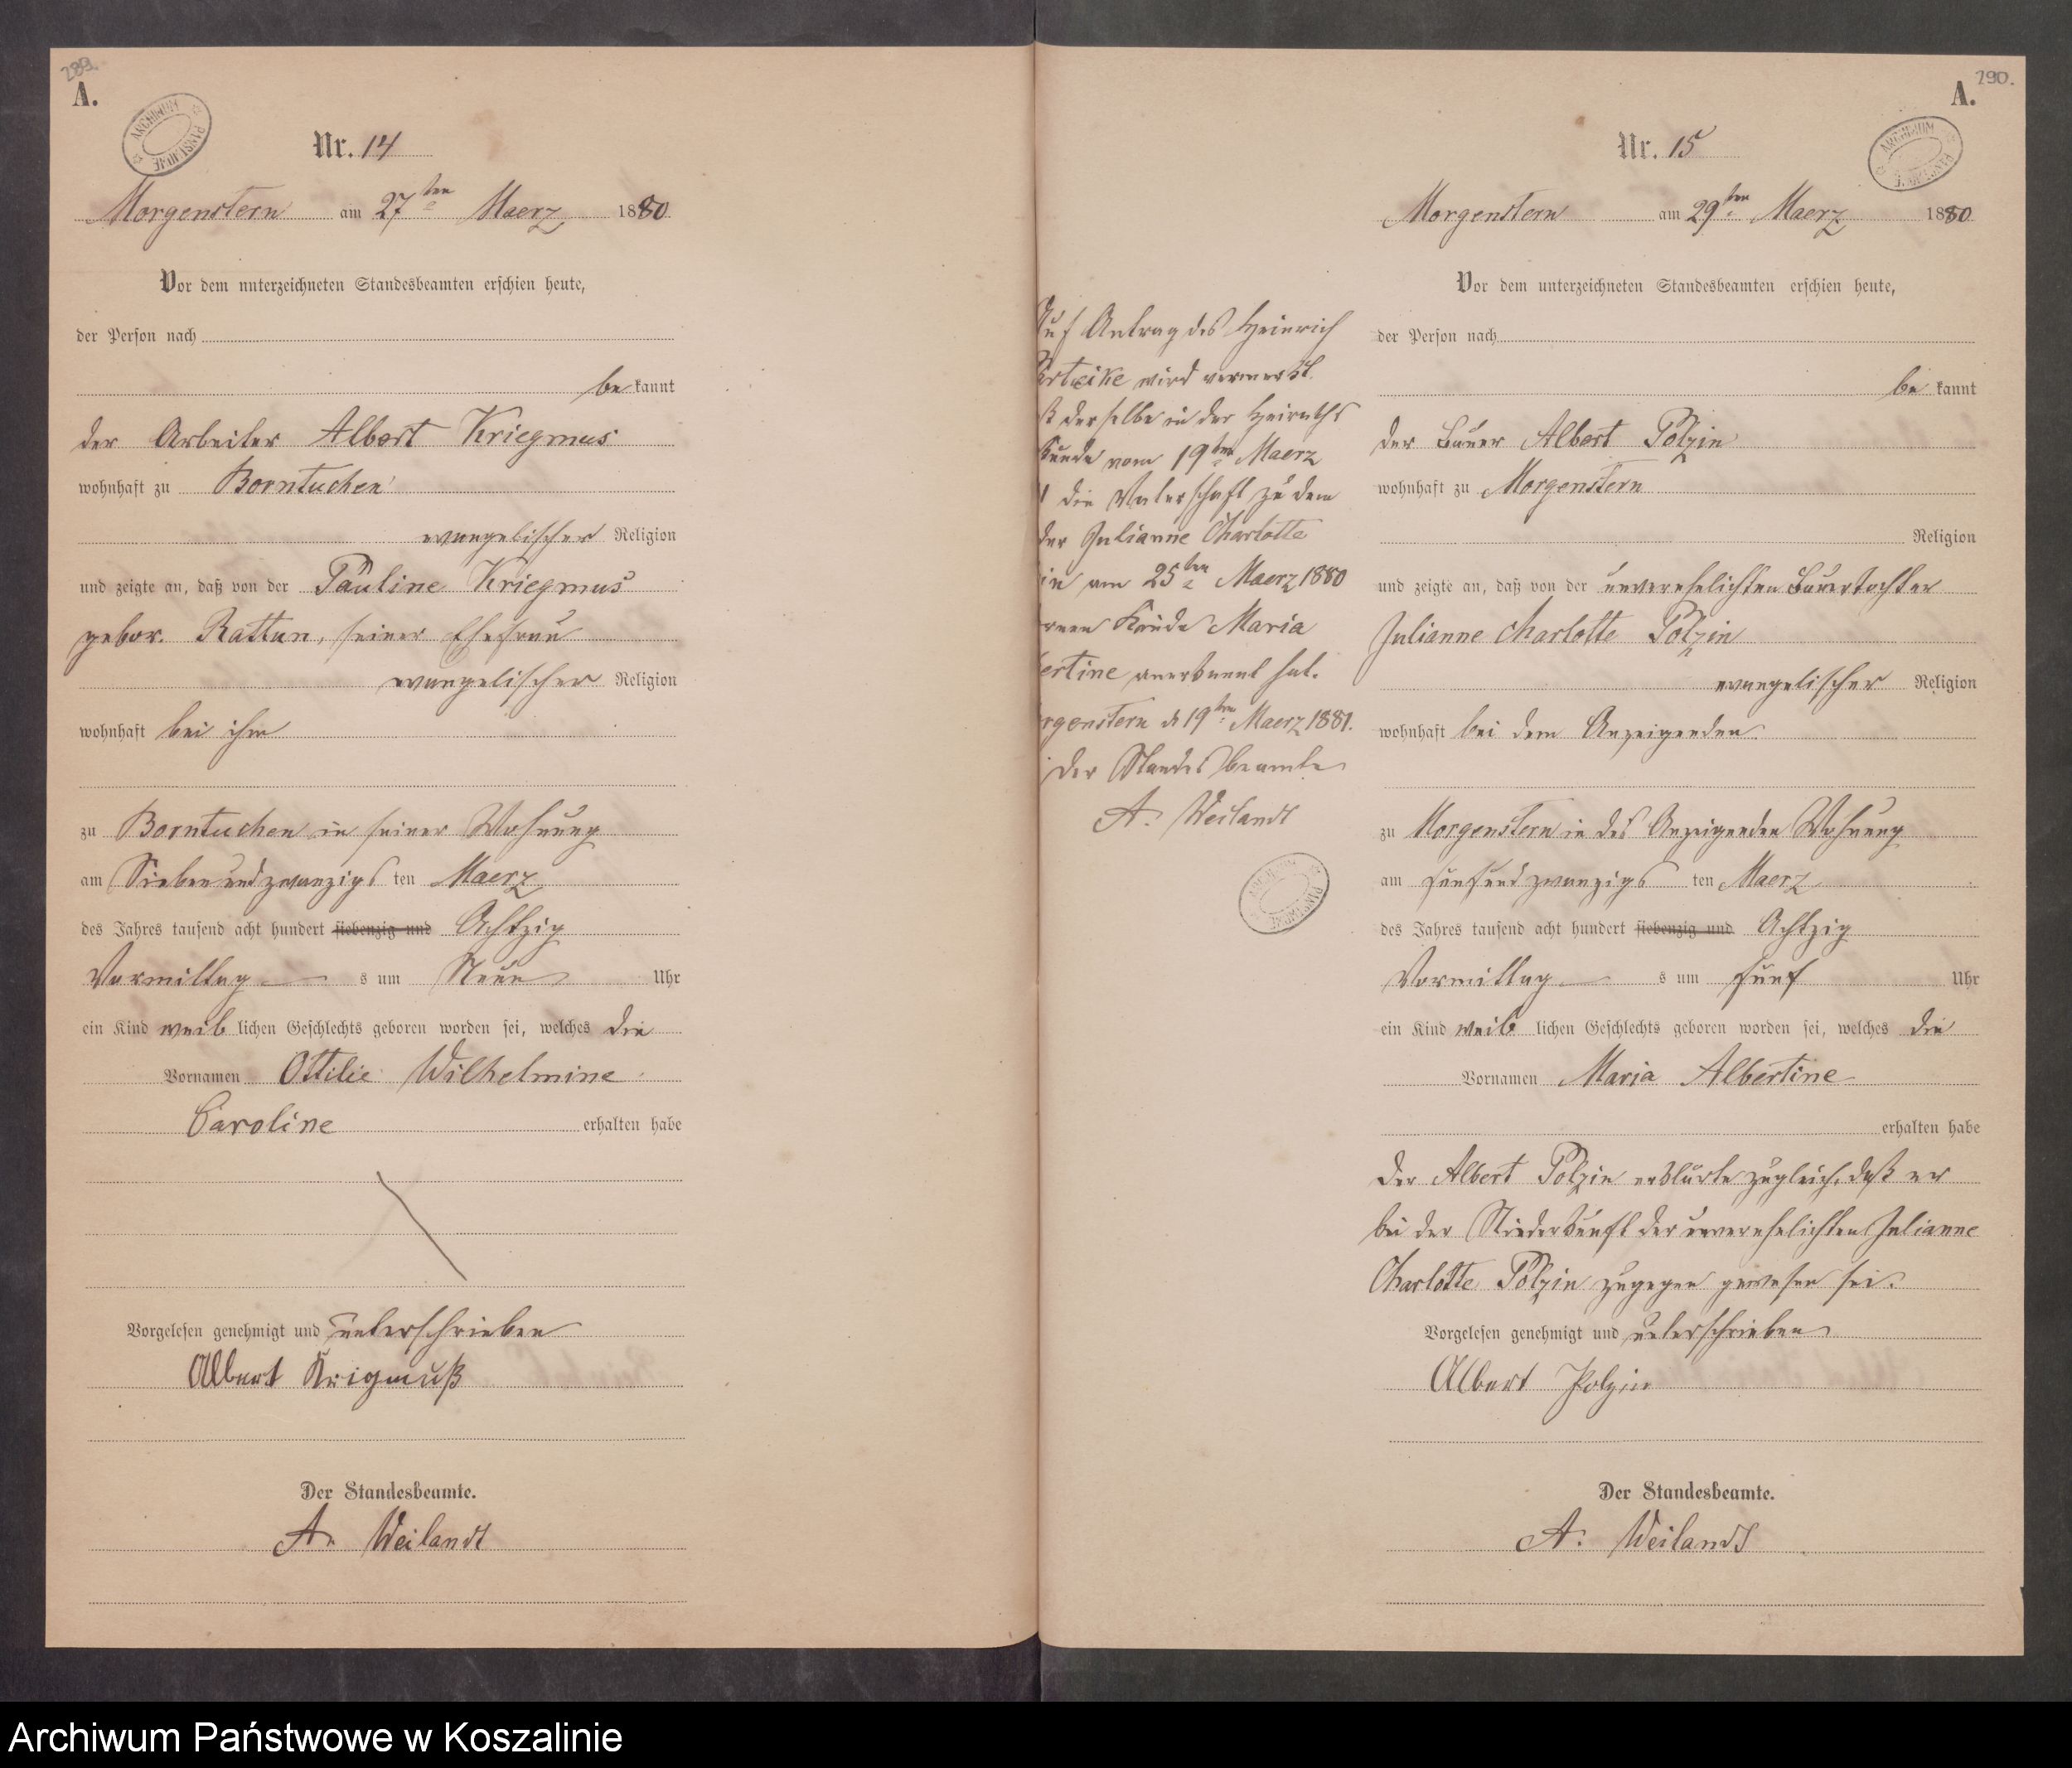 289.
A.
ARCHIWUM PAŃSTWOWE
Nr. 14
Morgenstern am 27ten Maerz 1880
Vor dem unterzeichneten Standesbeamten erschien heute,
der Person nach
bekannt
der Arbeiter Albert Kriegmus
wohnhaft zu Borntuchen
evangelischer Religion
und zeigte an, daß von der Pauline Kriegmus
gebor. Rattun, seiner Ehefrau
evangelischer Religion
wohnhaft bei ihm
zu Borntuchen in seiner Wohnung
am Siebenundzwanzigsten Maerz
des Jahres tausend acht hundert siebenzig und Achtzig
Vormittags um Neun Uhr
ein Kind weiblichen Geschlechts geboren worden sei, welches die
Vornamen Ottilie Wilhelmine
Caroline erhalten habe
Vorgelesen genehmigt und unterschrieben
Albert Krigmuß
Der Standesbeamte.
A. Weilandt
Auf Antrag des Heinrich
wird vermerkt
ß derselbe in der Heiraths
kunde vom 19ten Maerz
1 die Vaterschaft zu dem
der Julianne Charlotte
in am 25ten Maerz 1880
renen Kinde Maria
ertine anerkannt hat.
rgenstern d. 19ten Maerz 1881.
Der Standesbeamte
A. Weilandt
ARCHIWUM PAŃSTWOWE
190.
A.
ARCHIWUM PAŃSTWOWE
Nr. 15
Morgenstern am 29ten Maerz 1880
Vor dem unterzeichneten Standesbeamten erschien heute,
der Person nach
bekannt
der Bauer Albert Polzin
wohnhaft zu Morgenstern
Religion
und zeigte an, daß von der unverehelichten Bauertochter
Julianne Charlotte Polzin
evangelischer Religion
wohnhaft bei dem Anzeigenden
zu Morgenstern in des Anzeigenden Wohnung
am fünfundzwanzigsten Maerz
des Jahres tausend acht hundert siebenzig und Achtzig
Vormittags um fünf Uhr
ein Kind weiblichen Geschlechts geboren worden sei, welches die
Vornamen Maria Albertine
erhalten habe
Der Albert Polzin erklärte zugleich, daß er
bei der Niederkunft der unverehelichten Julianne
Charlotte Polzin zugegen gewesen sei.
Vorgelesen genehmigt und unterschrieben
Albert Polzin
Der Standesbeamte.
A. Weilandt
Archiwum Państwowe w Koszalinie